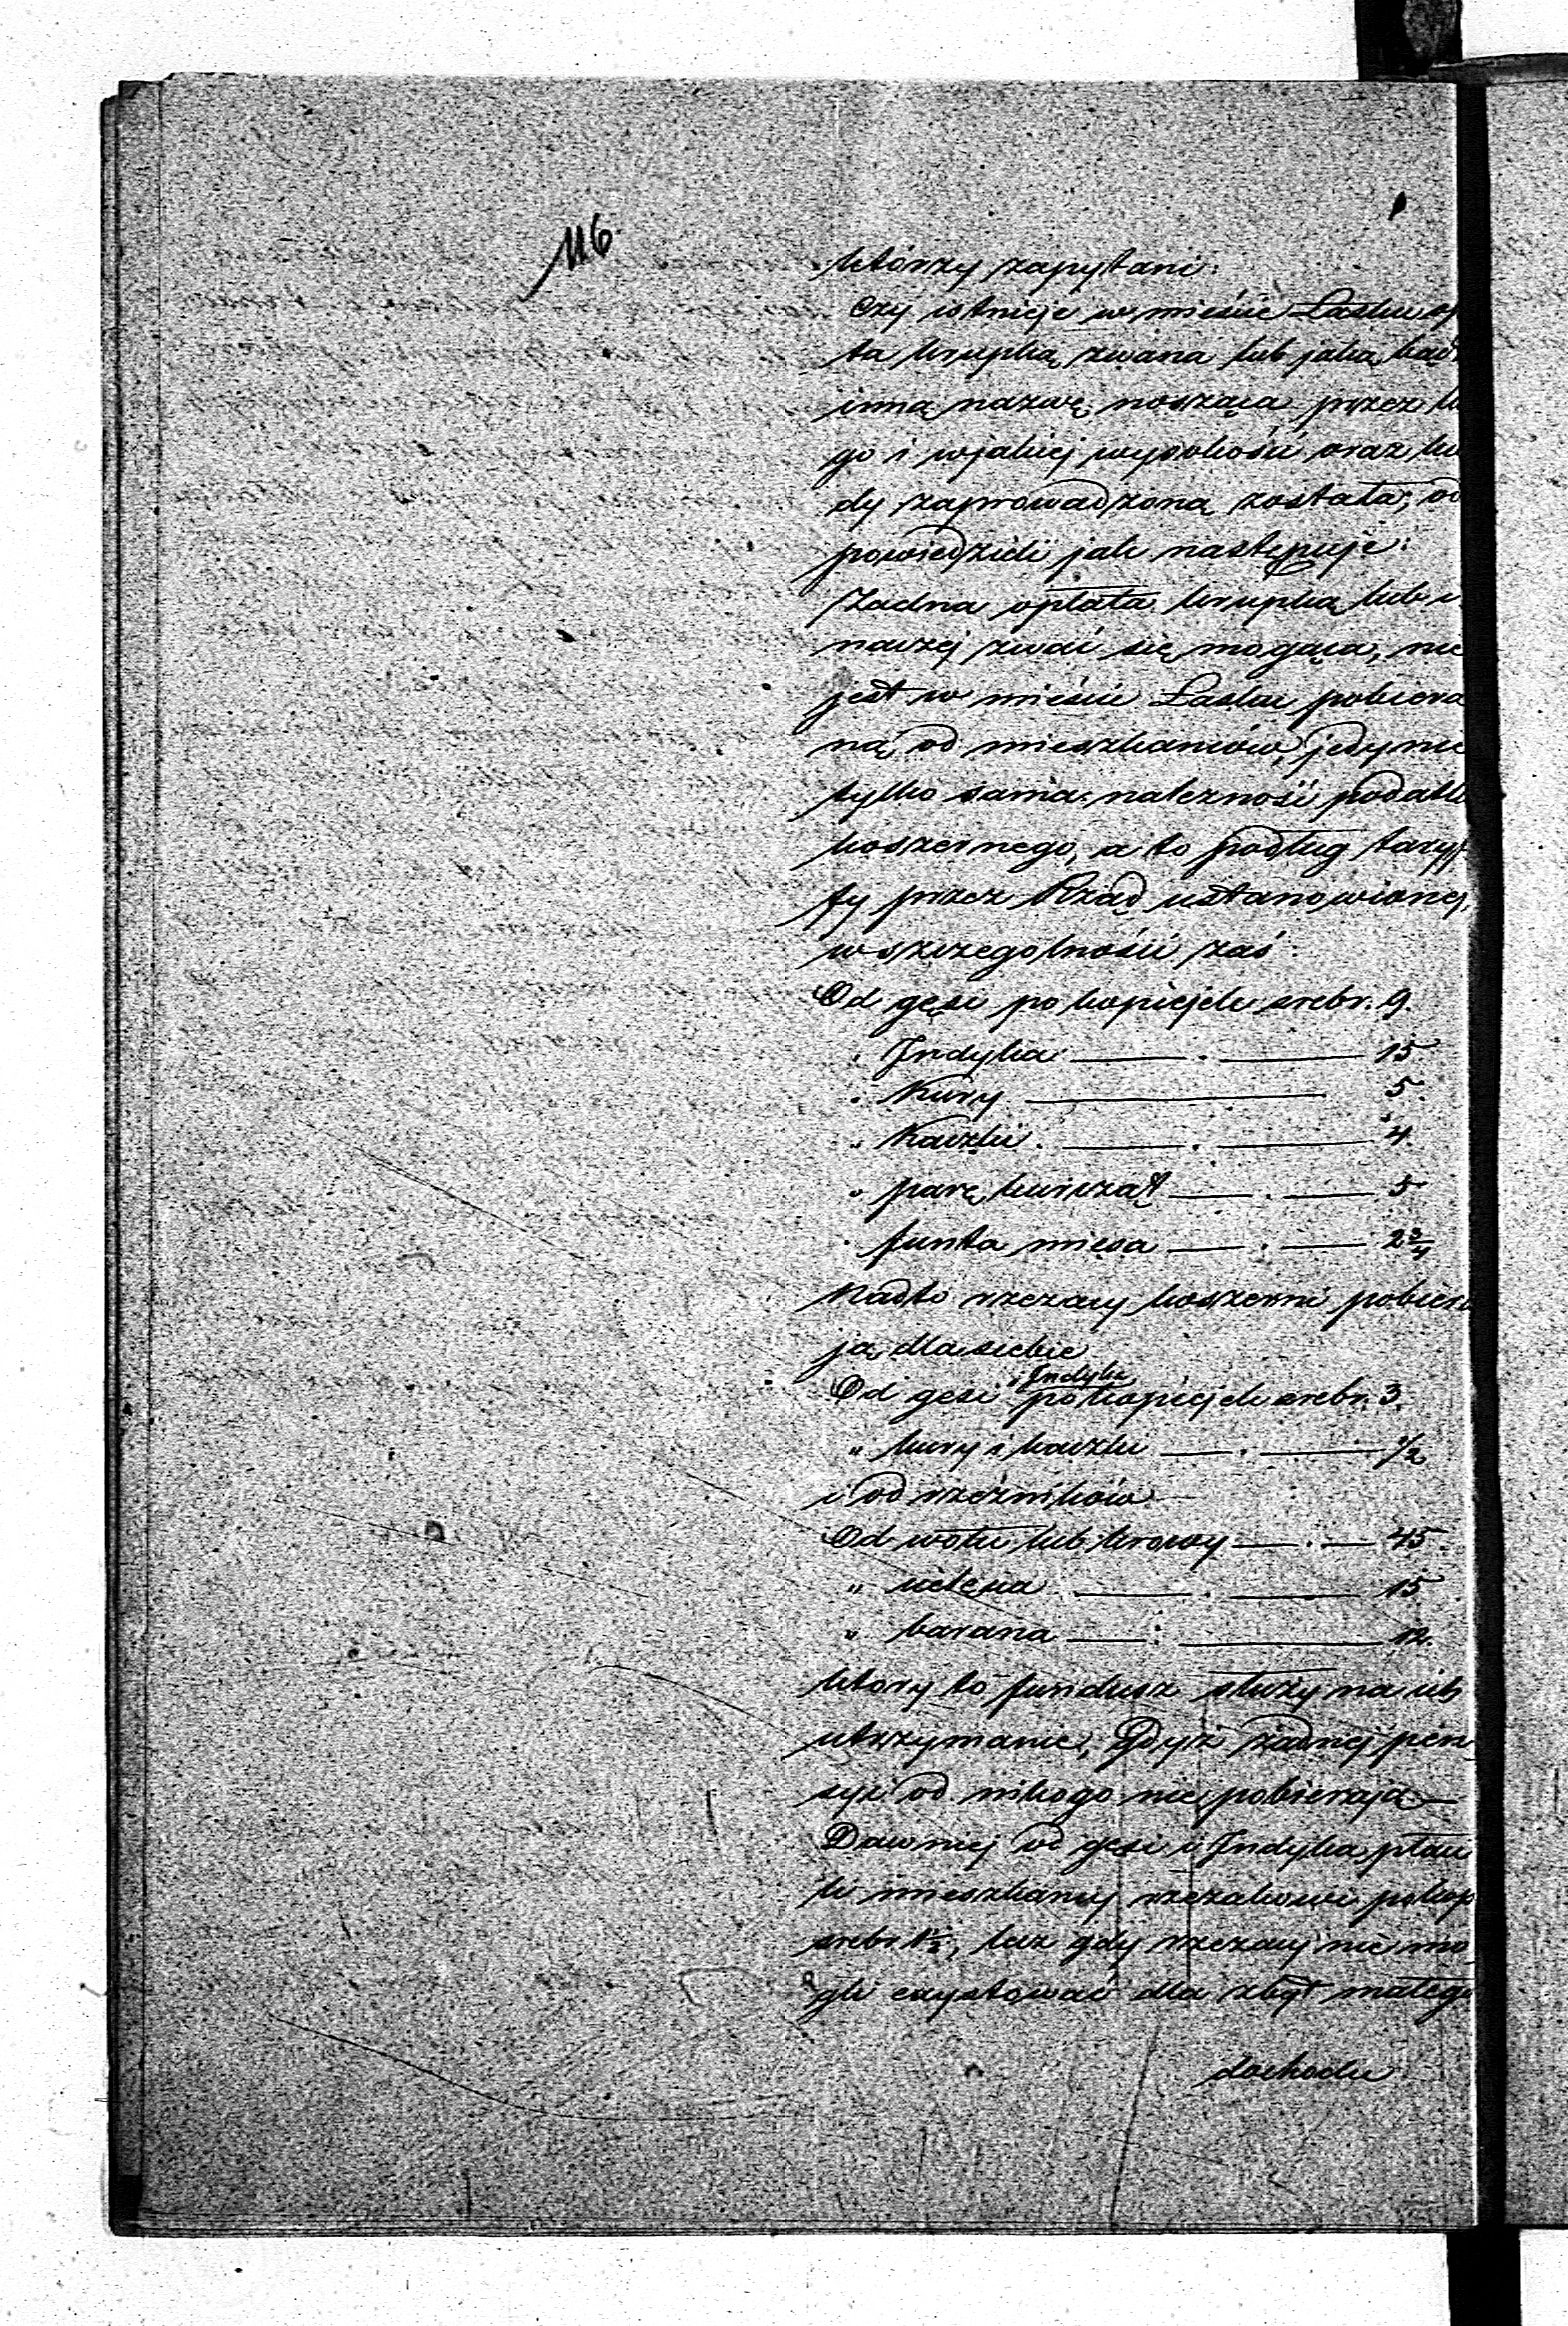 116.
którzy zapytani:
Czy istnieje w mieście Łasku o
ta krupką zwana lub jaką bąd
inną nazwę nosząca przez k
go i wjakiej wysokości oraz kie
dy zaprowadzoną została, od
powiedzieli jak następuje:
Żadna opłata krupką lub i
naczej zwać się mogąca, nie
jest w mieście Łasku pobiera
ną od mieszkańców, jedynie
tylko sama należność podatk
koszernego, a to podług taryf
fy przez Rząd ustanowionej,
w szczególności zaś:
Od gęsi po kopiejek srebr. 9.
" Indyka — . — 15
" Kury — 5.
" Kaczki . — . — 4.
" parę kurcząt — . — 5
" funta mięsa — . — 2 3/4
Nadto rzezacy koszerni pobiera
ją dla siebie
i Indyka
Od gęsi po kopiejek srebr. 3.
" kury i kaczki — . — 1/2
i od rzeźników
Od wołu lub krowy — . — 45.
" cielęcia — . — 15
" barana — . — 12.
który to fundusz służy na ich
utrzymanie, Gdyż żadnej pen
syi od nikogo nie pobierają —
Dawniej od gęsi i Indyka płaci
li mieszkańcy rzezakowi po kop
srebr. 1 1/2, lecz gdy rzezacy nie mo
gli exystować dla zbyt małego
dochodu